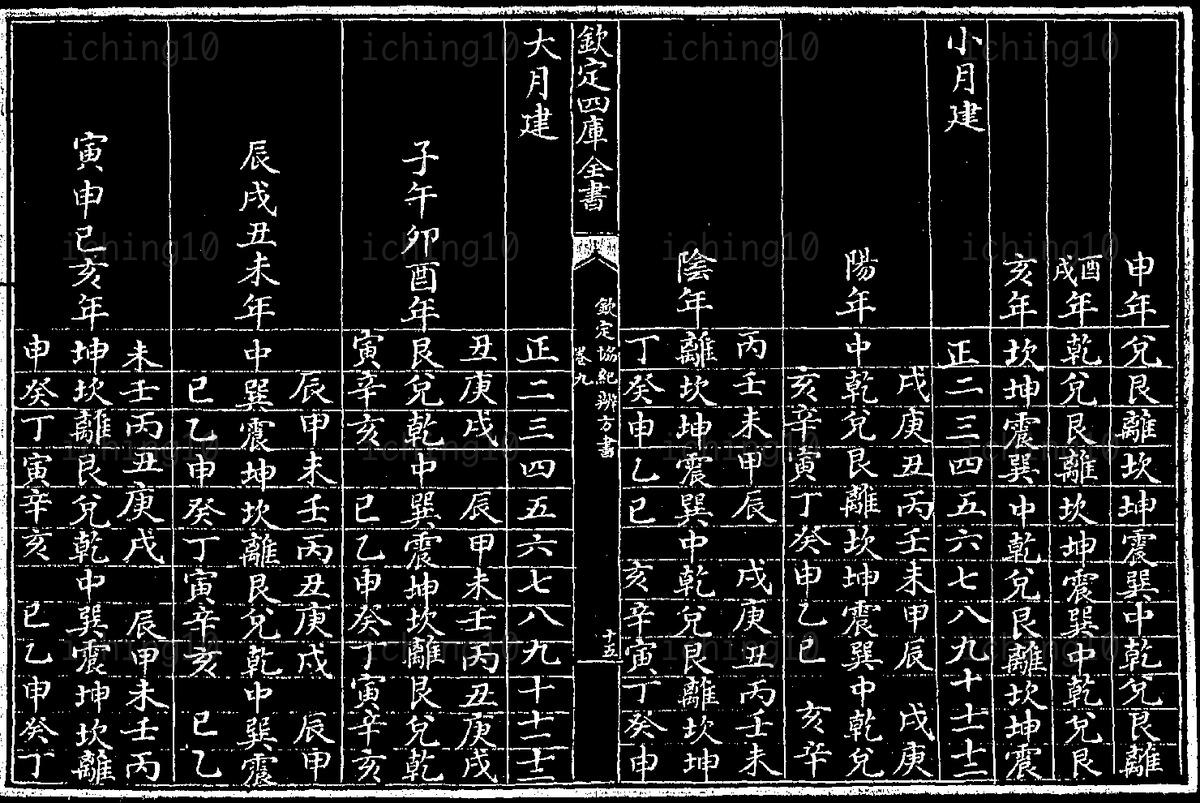 申年兌艮離坎坤震巽中乾兌艮離
酉戌年乾兌艮離坎坤震巽中乾兌艮
亥年坎坤震巽中乾兌艮離坎坤震
小月建正二三四五六七八九十十一十二
戌庚丑丙壬未甲辰 戌庚
陽年中乾兌艮離坎坤震巽中乾兌
亥辛寅丁癸申乙巳 亥辛
丙壬未甲辰 戌庚丑丙壬未
陰年離坎坤震巽中乾兌艮離坎坤
丁癸申乙巳 亥辛寅丁癸申
欽定四庫全書
欽定協紀辨方書
卷九
十五
大月建正二三四五六七八九十十一十二
丑庚戌 辰甲未壬丙丑庚戌
子午卯酉年艮兌乾中巽震坤坎離艮兌乾
寅辛亥 巳乙申癸丁寅辛亥
辰甲未壬丙丑庚戌 辰甲
辰戌丑未年中巽震坤坎離艮兌乾中巽震
巳乙申癸丁寅辛亥 巳乙
未壬丙丑庚戌 辰甲未壬丙
寅申巳亥年坤坎離艮兌乾中巽震坤坎離
申癸丁寅辛亥 巳乙申癸丁
iching10 iching10 iching10 iching10
iching10 iching10 iching10 iching10
iching10 iching10 iching10 iching10
iching10 iching10 iching10 iching10